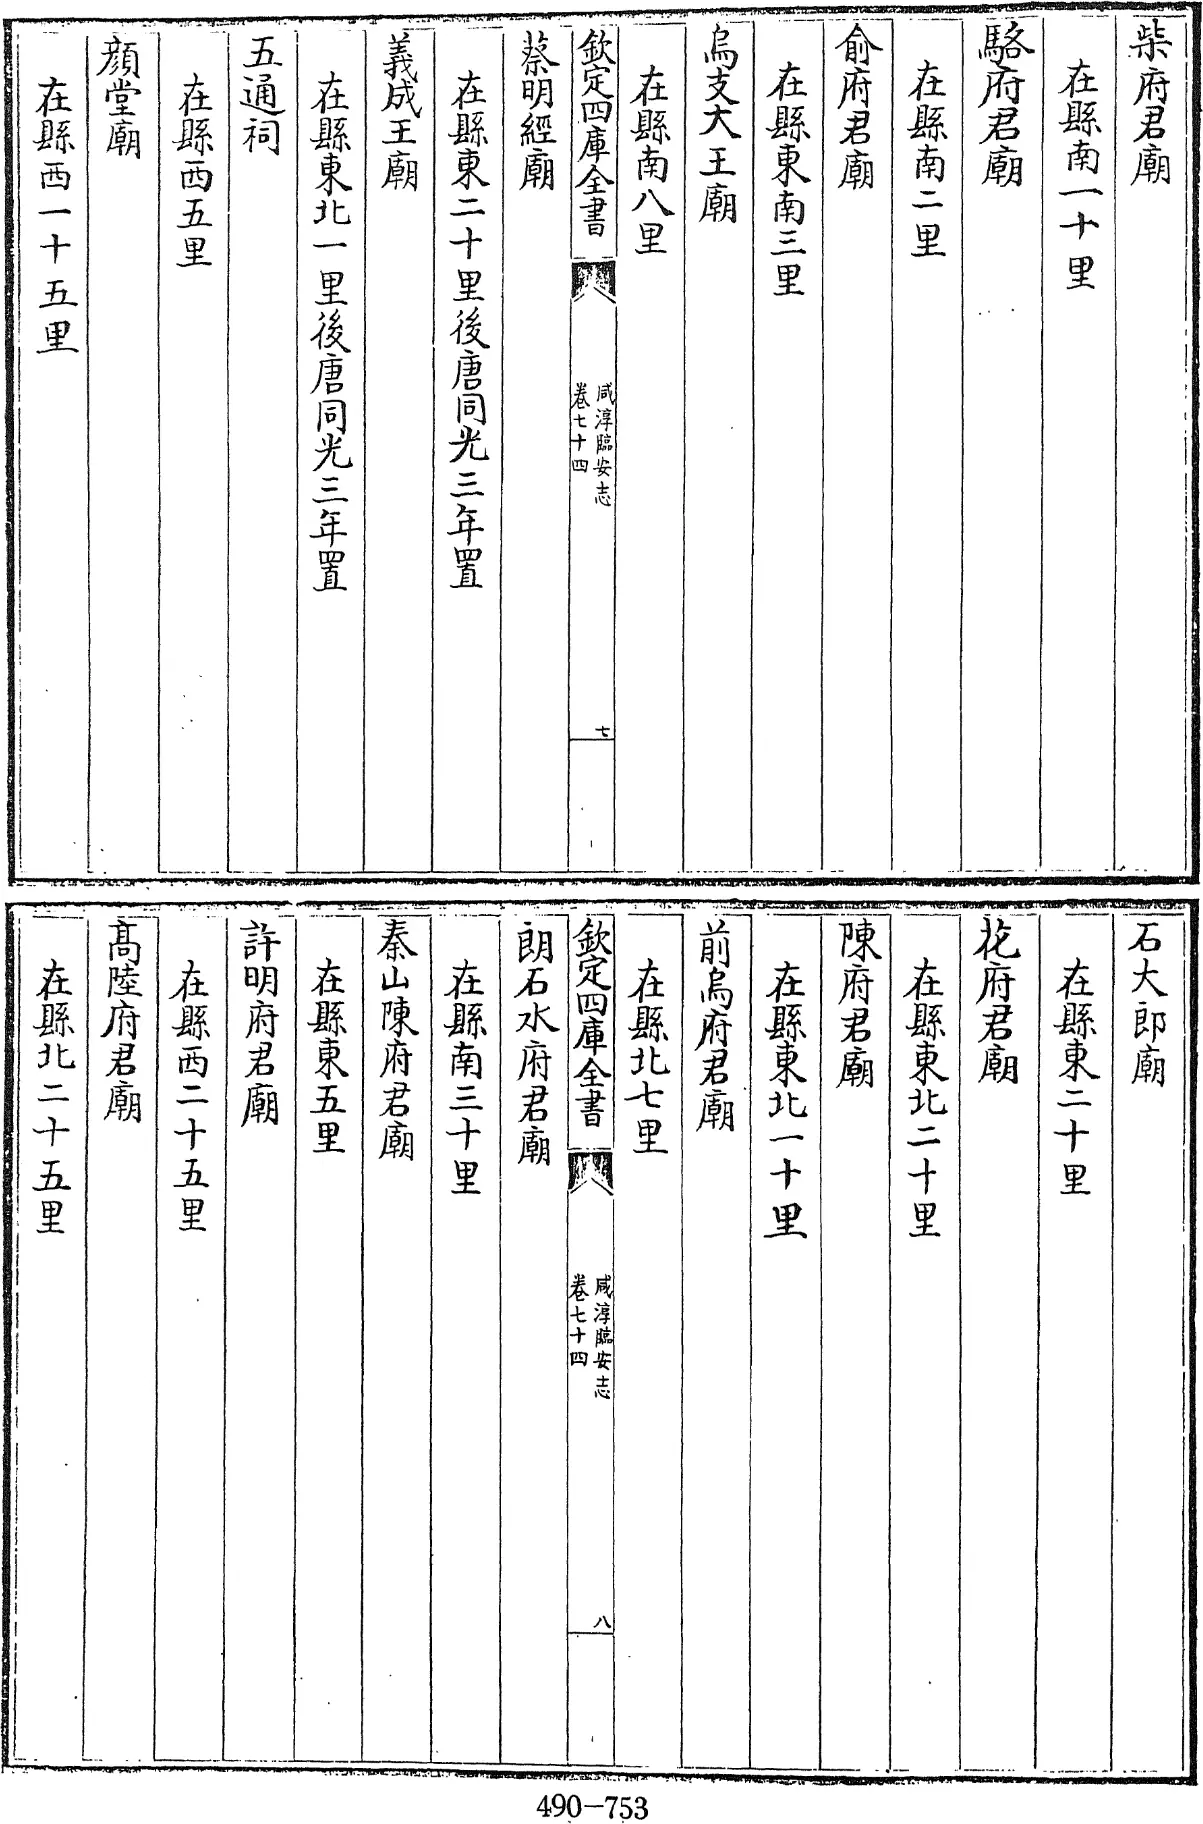 柴府君廟
在縣南一十里
駱府君廟
在縣南二里
俞府君廟
在縣東南三里
烏支大王廟
在縣南八里
欽定四庫全書
咸淳臨安志
卷七十四
七
蔡明經廟
在縣東二十里後唐同光三年置
義成王廟
在縣東北一里後唐同光三年置
五通祠
在縣西五里
顔堂廟
在縣西一十五里
石大郎廟
在縣東二十里
花府君廟
在縣東北二十里
陳府君廟
在縣東北一十里
前烏府君廟
在縣北七里
欽定四庫全書
咸淳臨安志
卷七十四
八
朗石水府君廟
在縣南三十里
秦山陳府君廟
在縣東五里
許明府君廟
在縣西二十五里
髙陸府君廟
在縣北二十五里
490-753